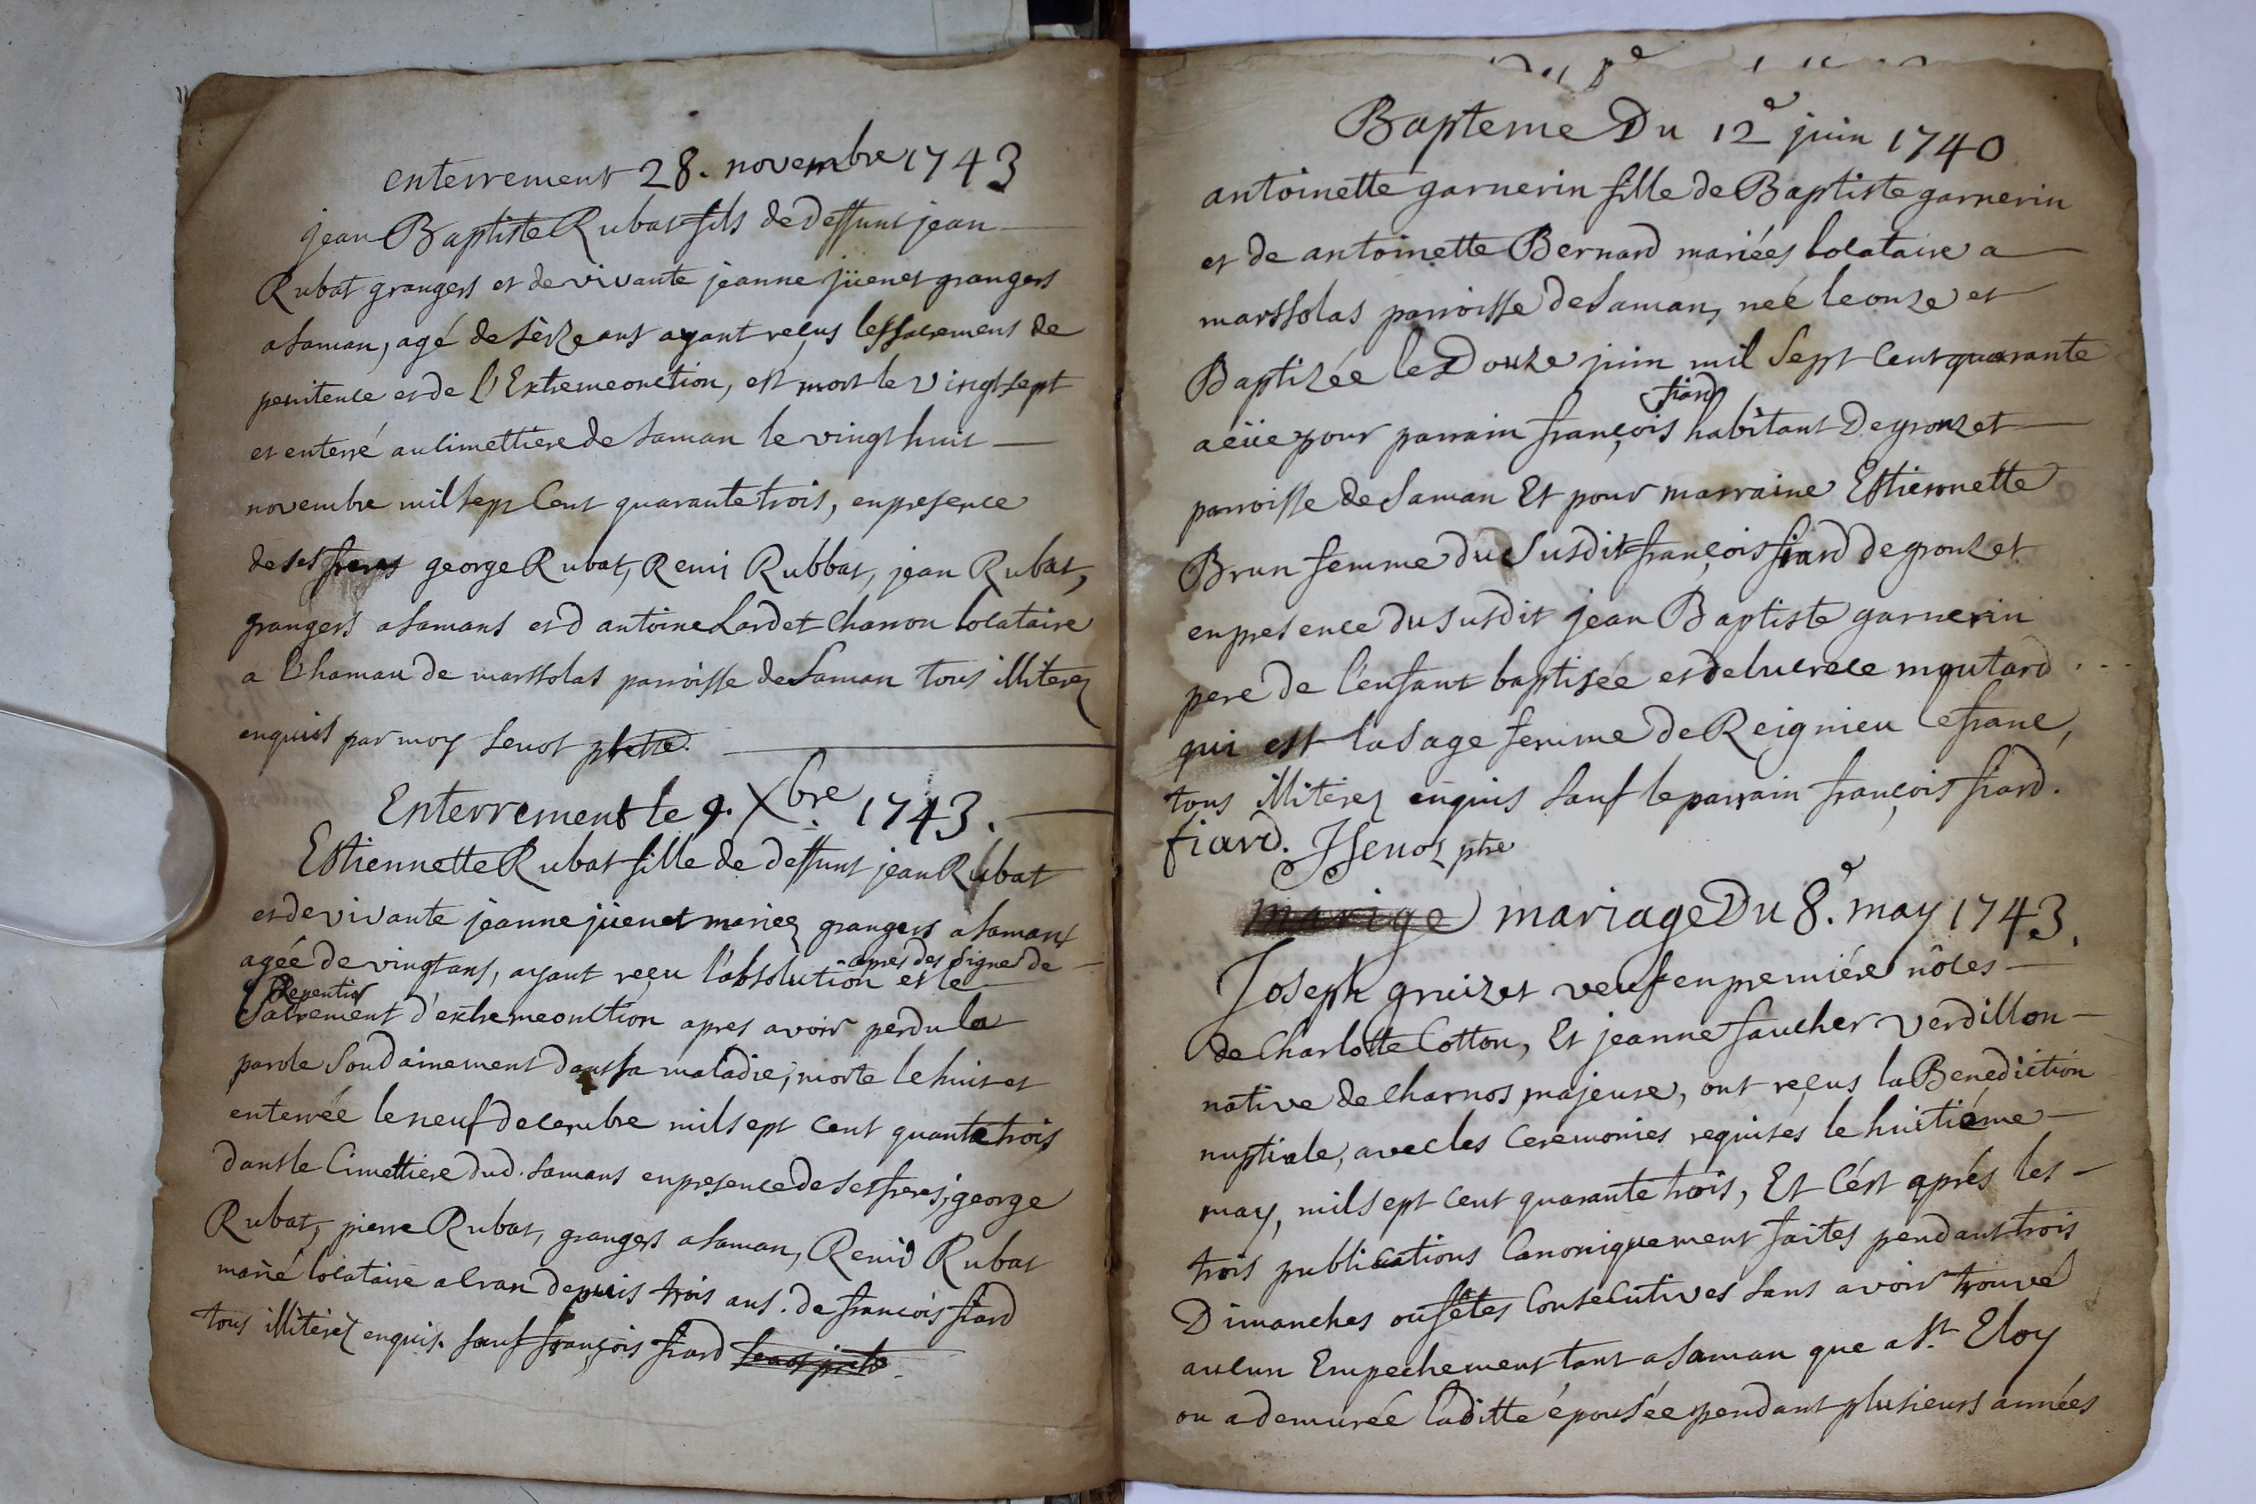 enterrement 28. novembre 1743
jean Baptiste Rubat fils de deffunt jean
Rubat grangers et de vivante jeanne jüenet grangers
a Saman, agé de sèize ans ayant reçus les sacremens de
penitence et de l'Extremeonction, est mort le vingt sept
et enterré au cimettiere de Saman le vingt huit
novembre mil sept Cent quarante trois, en presence
de ses freres george Rubat, Remi Rubbat, jean Rubat,
grangers a Samans et d antoine Lardet charron locataire
a l'hamau de marssolas parroisse de Saman tous illiterez
enquis par moy Senoz ptre.
Enterrement le 9. Xbre. 1743.
Estiennette Rubat fille de deffunt jean Rubat
et de vivante jeanne jüenet mariez grangers a Samans
agée de vingt ans, ayant reçu l'absolution apres des signes de
Repentir et le
Sacrement d'extremeonction apres avoir perdu la
parole Soudainement dans sa maladie, morte le huit et
enterrée le neuf decembre mil sept cent quarante trois
dans le Cimettiere dud. Samans en presence de ses freres, george
Rubat, pierre Rubat, grangers a Saman, Remi Rubat
marié locataire a Cran depuis trois ans. de françois fiard
tous illiterez enquis. sauf françois fiard Senoz ptre
Bapteme Du 12e juin 1740
antoinette garnerin fille de Baptiste garnerin
et de antoinette Bernard mariées locataire a
marssolas parroisse de Saman, neé le onze et
Baptizée le Douze juin mil Sept Cent quarante
a eüe pour parrain françois fiard habitant De gronzet
parroisse de Saman Et pour marraine Estiennette
Brun femme du Susdit françois fiard de gronzet
en presence du susdit jean Baptiste garnerin
pere de l'enfant baptisée et de lucrece moutard
qui est la sage femme de Reignieu le franc,
tous illiterez enquis sauf le parrain françois fiard.
fiard. JSenoz ptre
marige mariage Du 8.e may 1743.
Joseph gruizet veuf en premiére nôces
de Charlotte Cotton, Et jeanne faucher verdillon
native de charnos, majeure, ont reçus la Benediction
nuptiale, avec les ceremonies requisés le huitiéme
may, mil sept cent quarante trois, Et c'ést aprés les
trois publications Canoniquement faites pendant trois
Dimanches ou fêtes Consecutives sans avoir trouvé
aucun Empechement tant a Saman que a St. Eloy
ou a demurée laditte épousée pendant plusieurs années